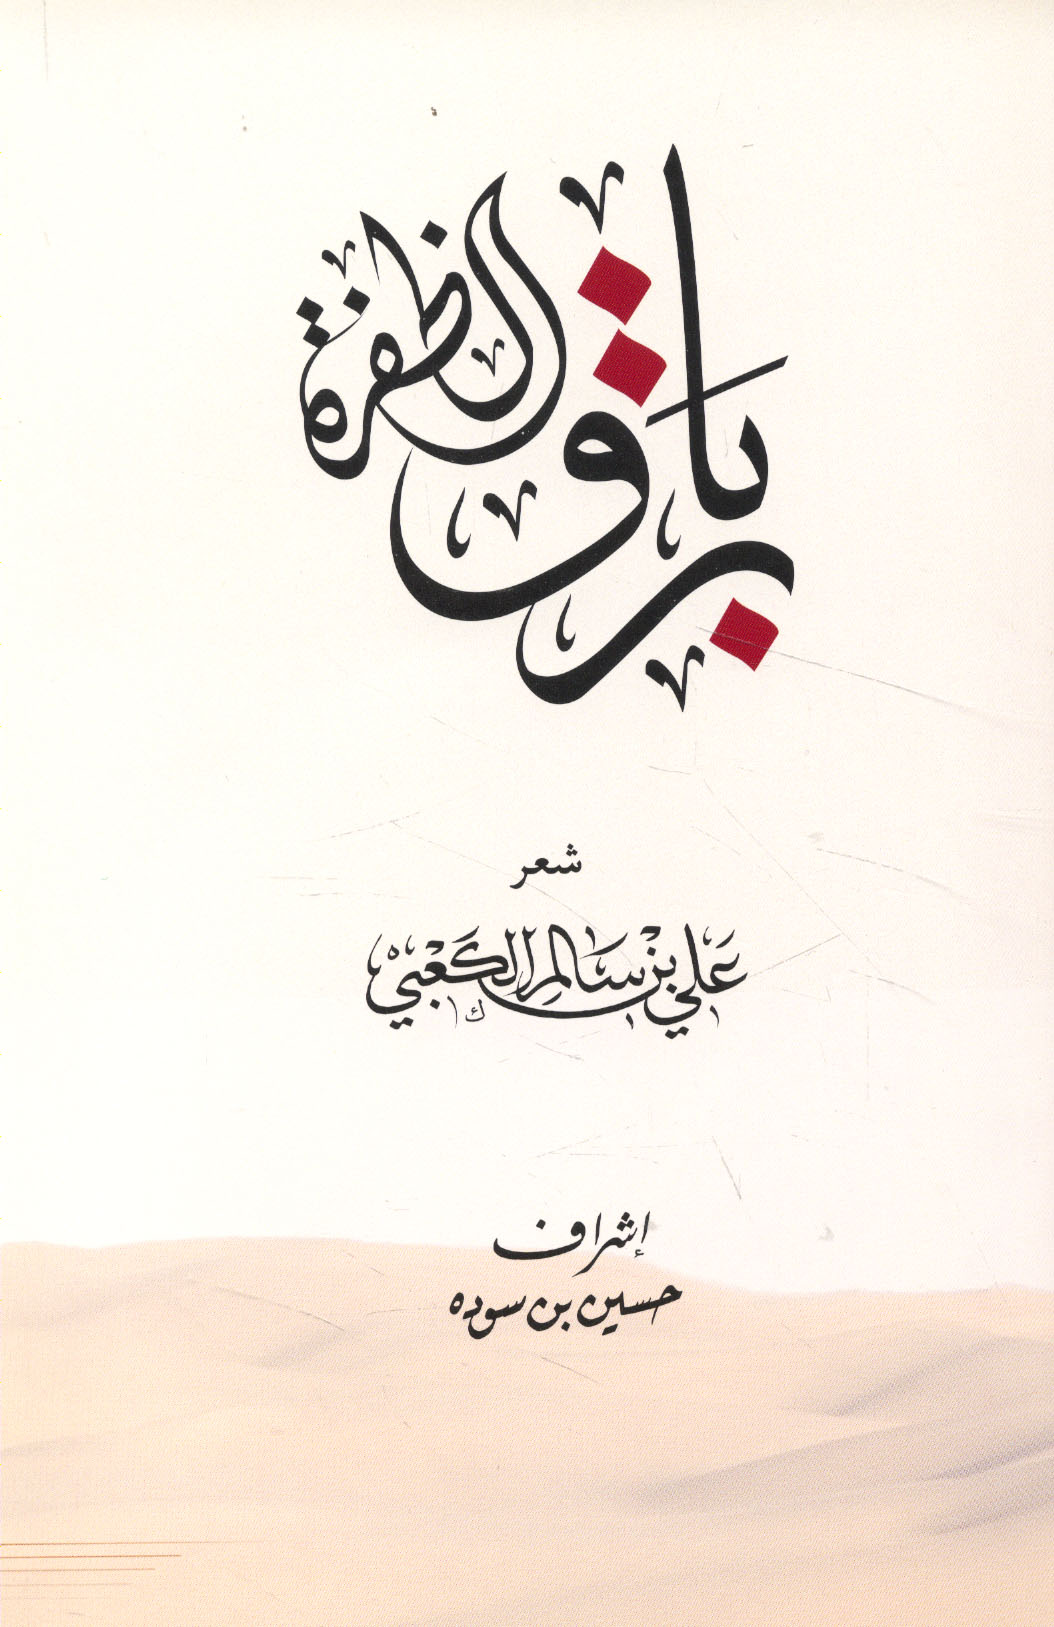 بارق الظفرة
شعر
علي بن سالم الكعبي
إشراف
حسين بن سوده